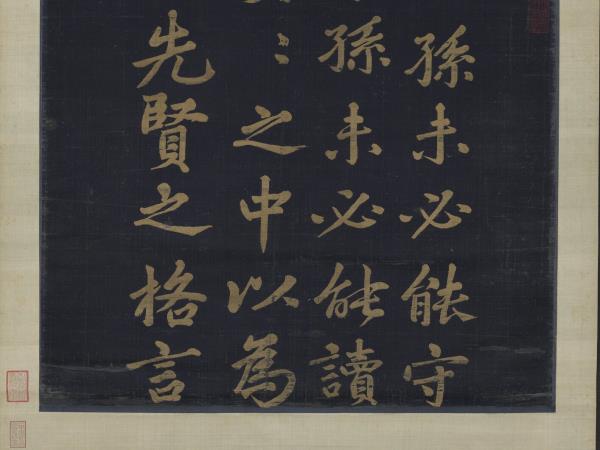 孫未必能守
孫未必能讀
〻之中以為
先賢之格言